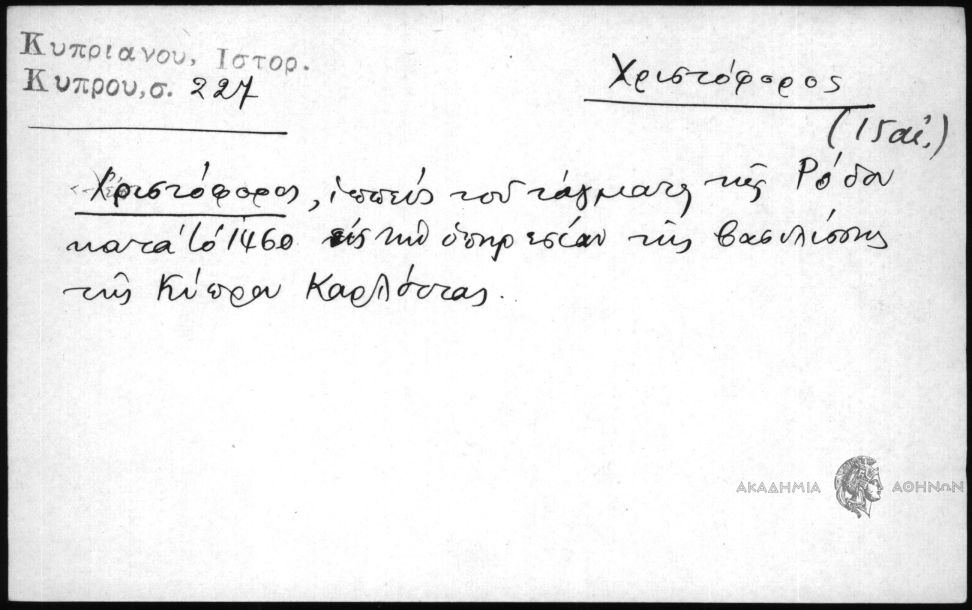 Κυπριανου, Ιστορ.
Κυπρου, σ. 227
Χριστόφορος
(15 αἰ.)
Χριστόφορος, ἱππεύς τοῦ τάγματος τῆς Ρόδου
κατά τό 1460 εἰς τήν ὑπηρεσίαν τῆς βασιλίσσης
τῆς Κύπρου Καρλόττας.
ΑΚΑΔΗΜΙΑ ΑΘΗΝΩΝ